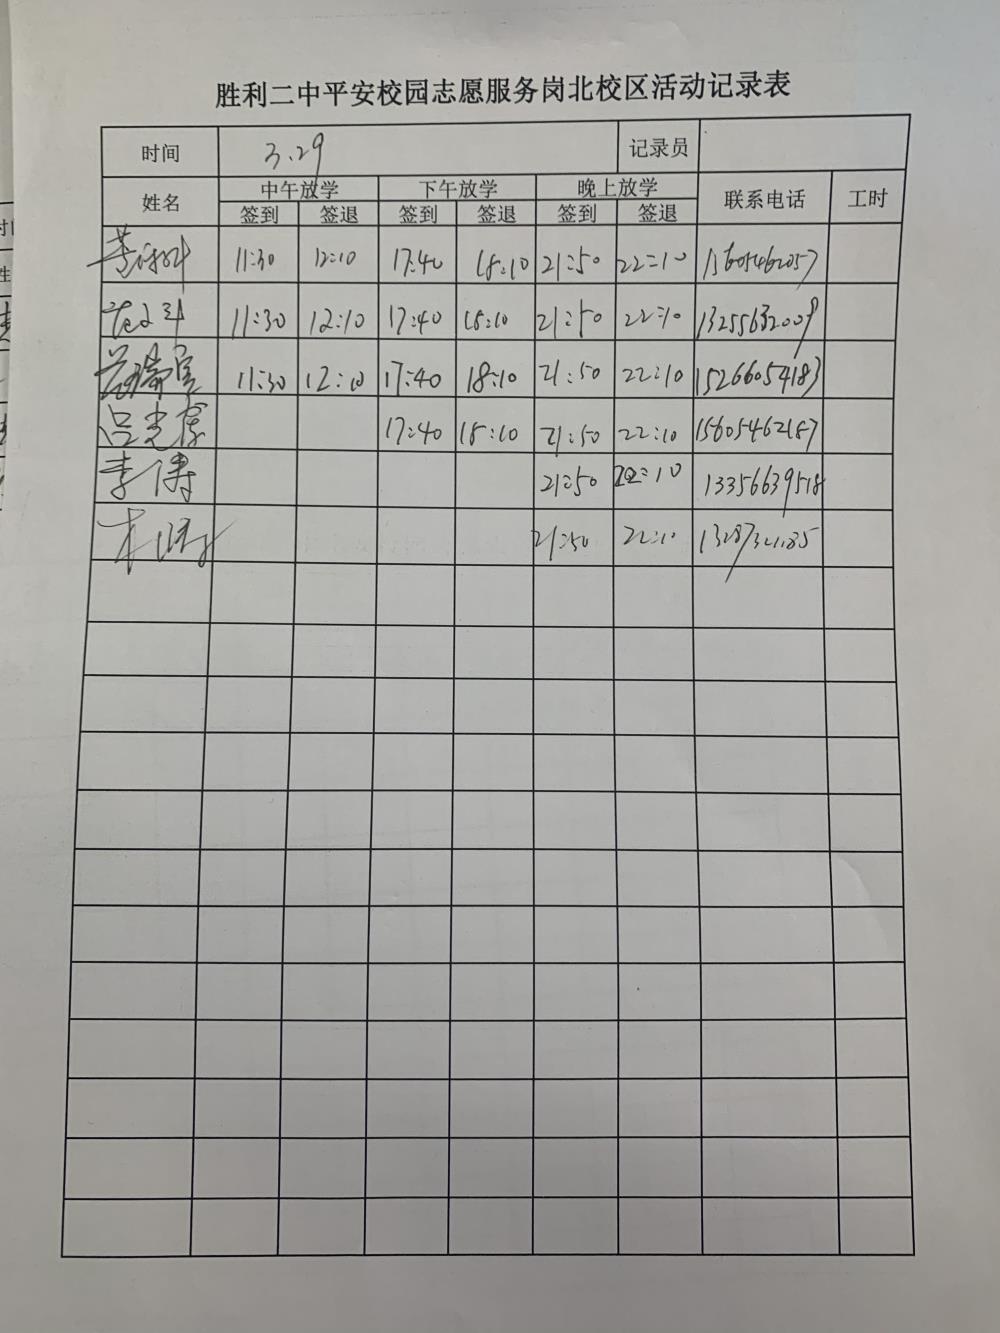 胜利二中平安校园志愿服务岗北校区活动记录表
时间 3.29 记录员
姓名 中午放学 下午放学 晚上放学 联系电话 工时
签到 签退 签到 签退 签到 签退
11:30 12:10 17:40 18:10 21:50 22:10 15605462057
11:30 12:10 17:40 18:10 21:50 22:10 13255632009
11:30 12:10 17:40 18:10 21:50 22:10 15266054183
吕光 17:40 18:10 21:50 22:10 15605462187
李涛 21:50 22:10 13356639518
21:50 22:10